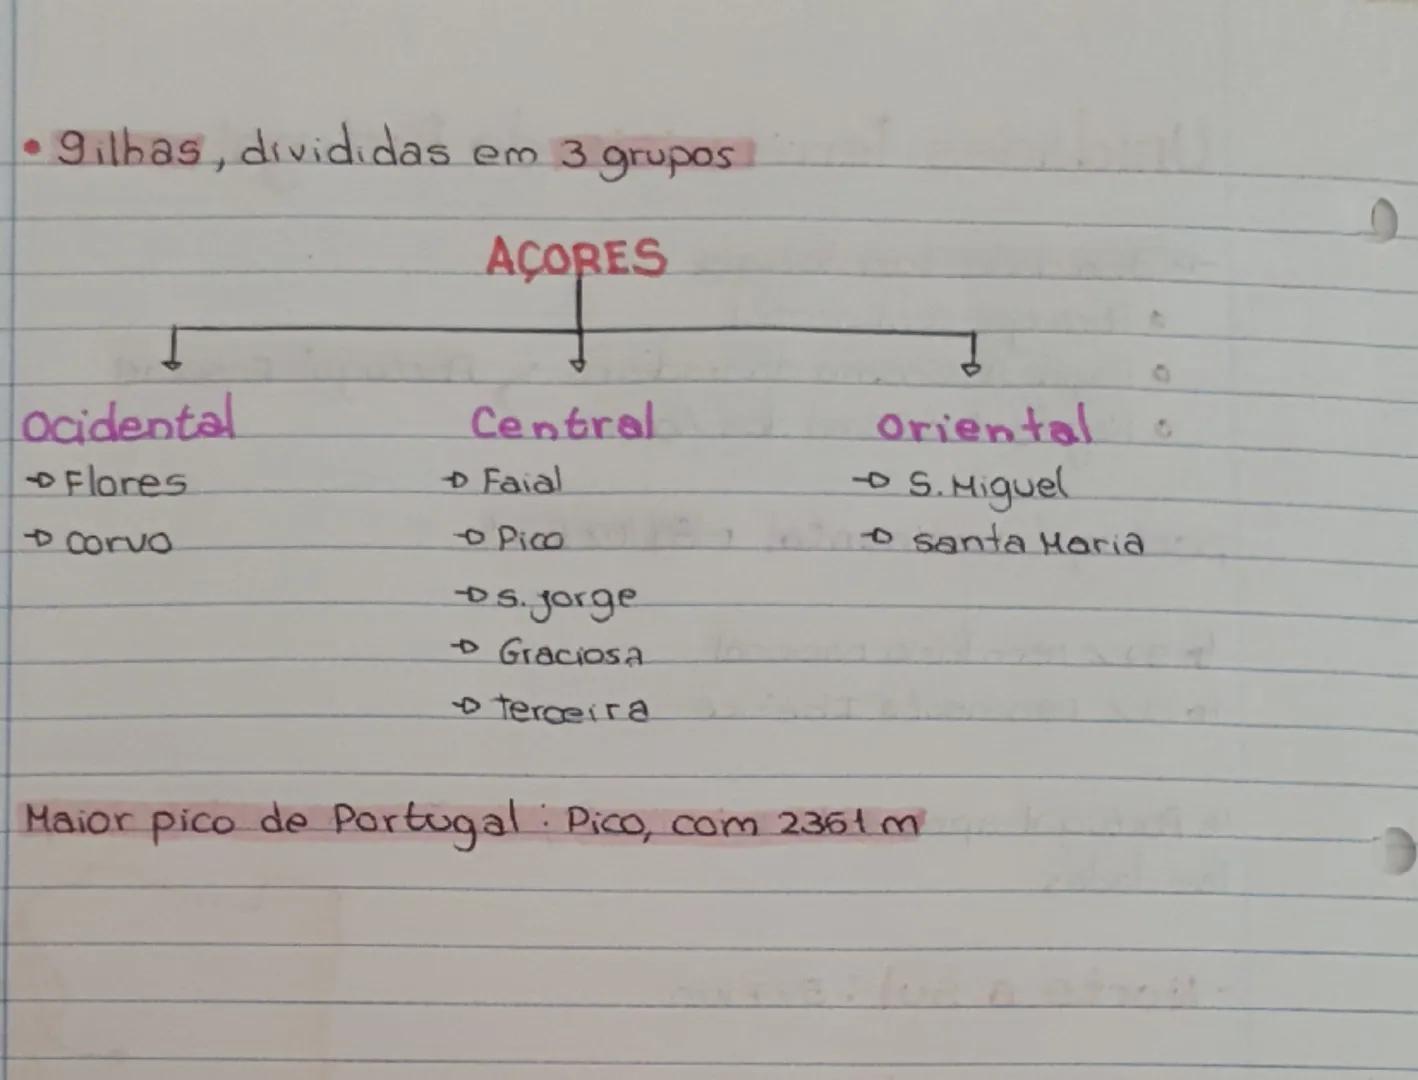 • 9 ilhas, divididas em 3 grupos
AÇORES
Ocidental Central Oriental
→ Flores → Faial → S. Miguel
→ Corvo → Pico → Santa Maria
→ S. Jorge
→ Graciosa
→ Terceira
Maior pico de Portugal : Pico, com 2351 m